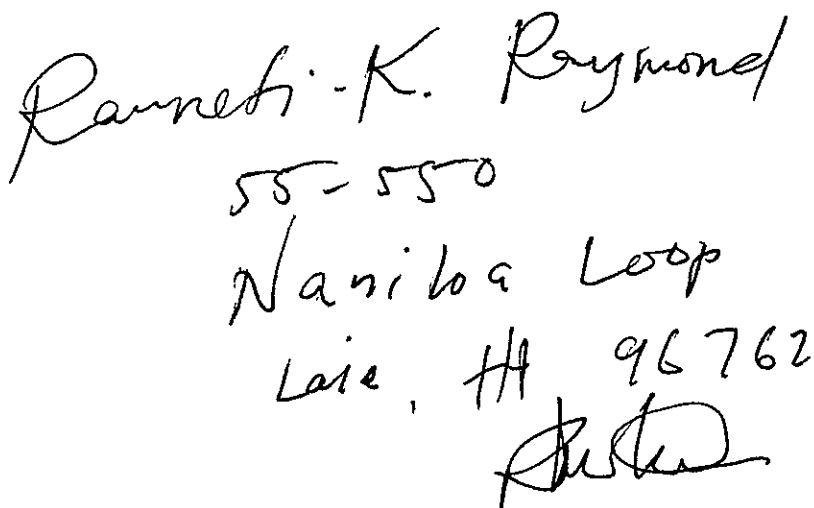 K. Raymond
55-550
Naniloa Loop
Laie, HI 96762